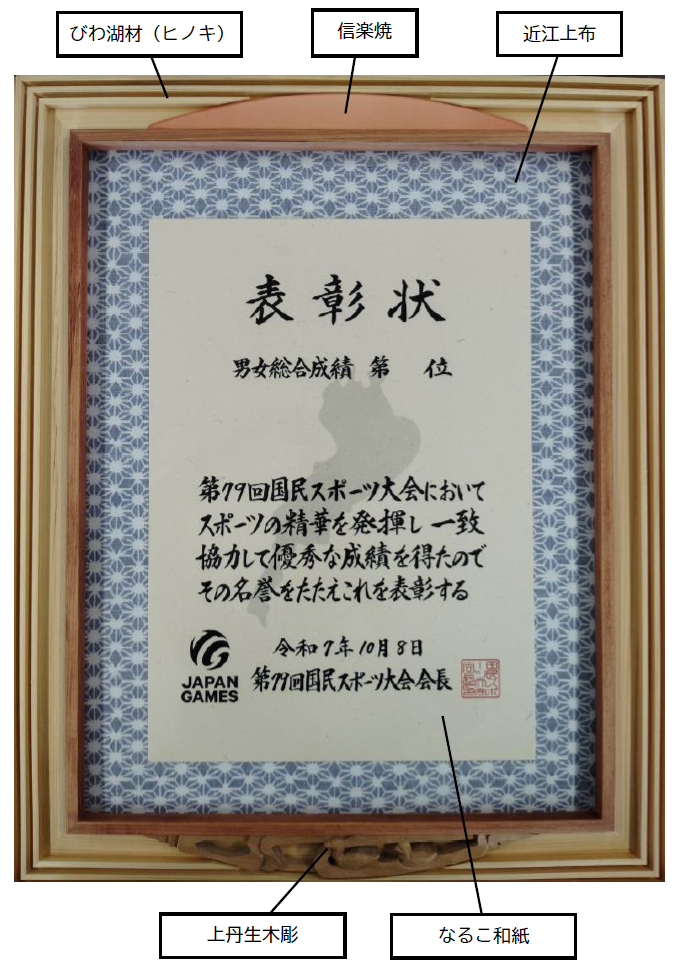 びわ湖材（ヒノキ）
信楽焼
近江上布
表彰状
男女総合成績 第　位
第79回国民スポーツ大会において
スポーツの精華を発揮し一致
協力して優秀な成績を得たので
その名誉をたたえこれを表彰する
令和7年10月8日
JAPAN
GAMES
第79回国民スポーツ大会会長
上丹生木彫
なるこ和紙